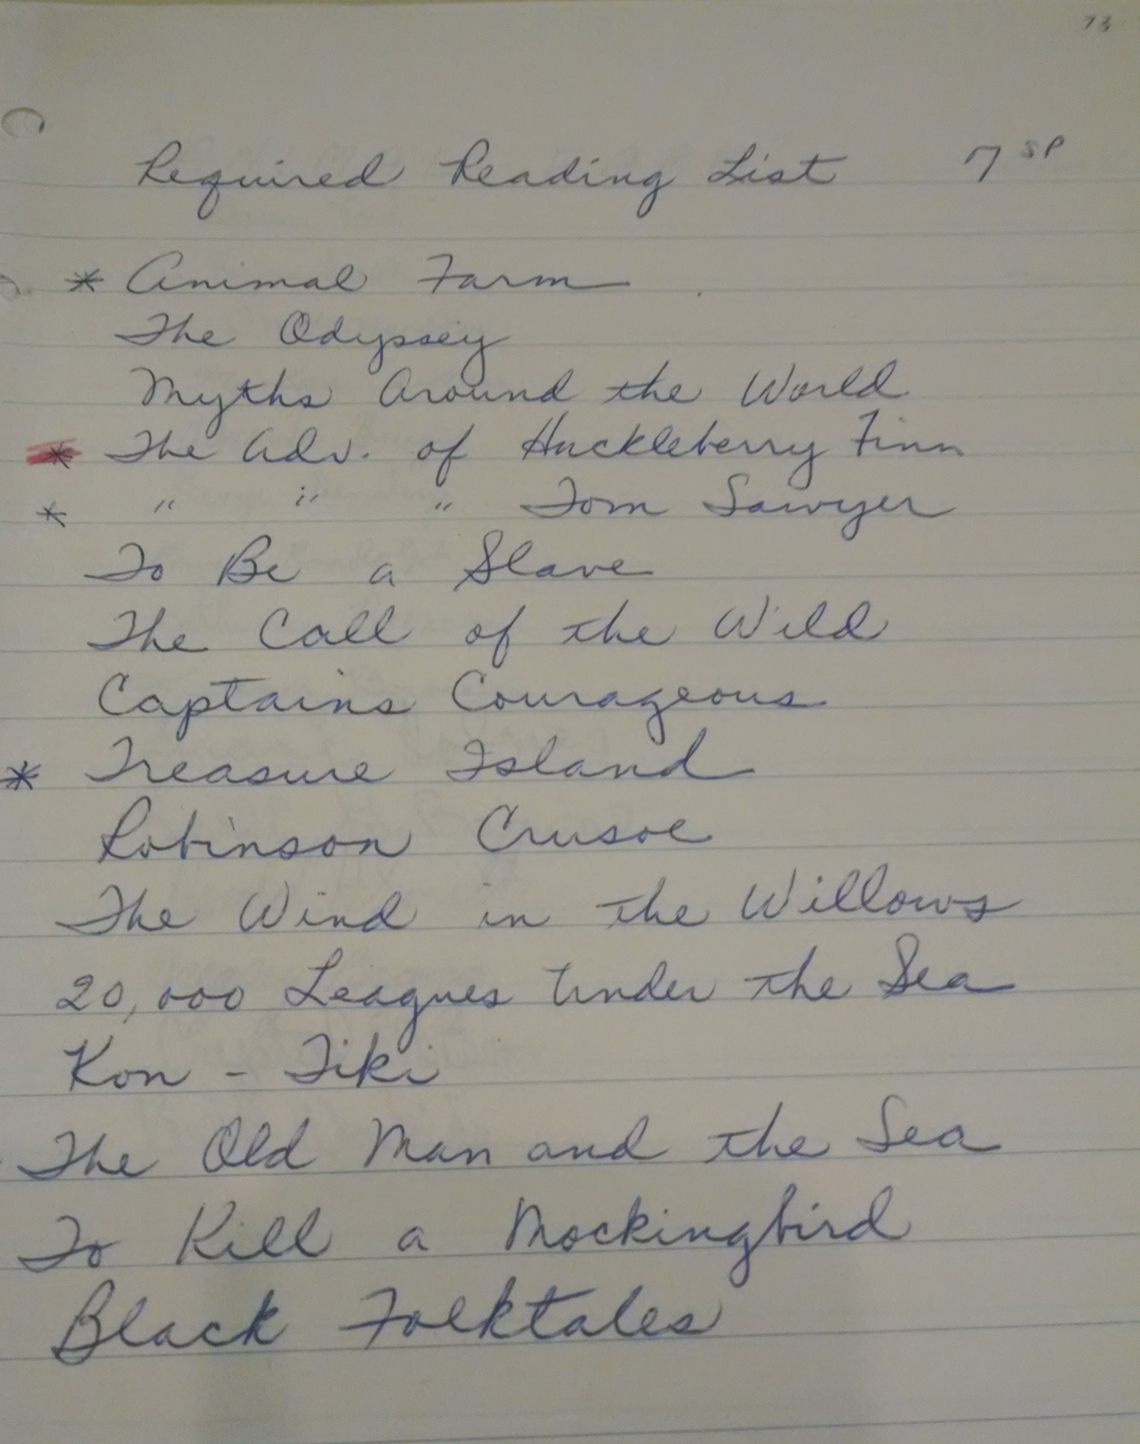 73
Required Reading List 7 SP
* Animal Farm
The Odyssey
Myths Around the World
* The Adv. of Huckleberry Finn
* " " " Tom Sawyer
To Be a Slave
The Call of the Wild
Captains Courageous
* Treasure Island
Robinson Crusoe
The Wind in the Willows
20,000 Leagues Under the Sea
Kon - Tiki
The Old Man and the Sea
To Kill a Mockingbird
Black Folktales